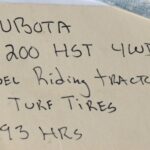 UBOTA
200 HST 4WD
EL Riding TRACTO
TURF TIRES
93 HRS